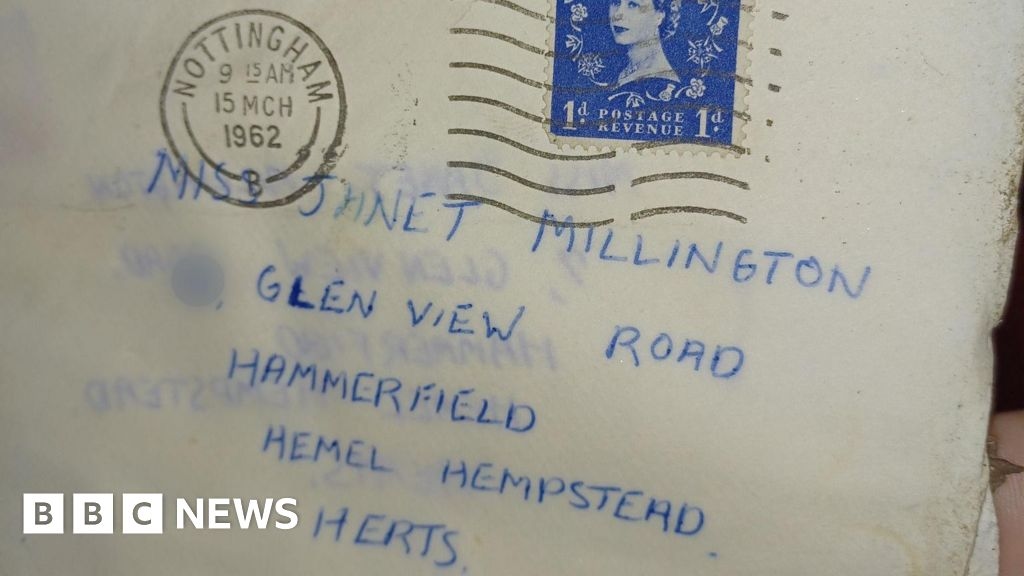 NOTTINGHAM
9 15 AM
15 MCH
1962
B
1d POSTAGE REVENUE 1d
MISS JANET MILLINGTON
, GLEN VIEW ROAD
HAMMERFIELD
HEMEL HEMPSTEAD.
HERTS.
BBC NEWS